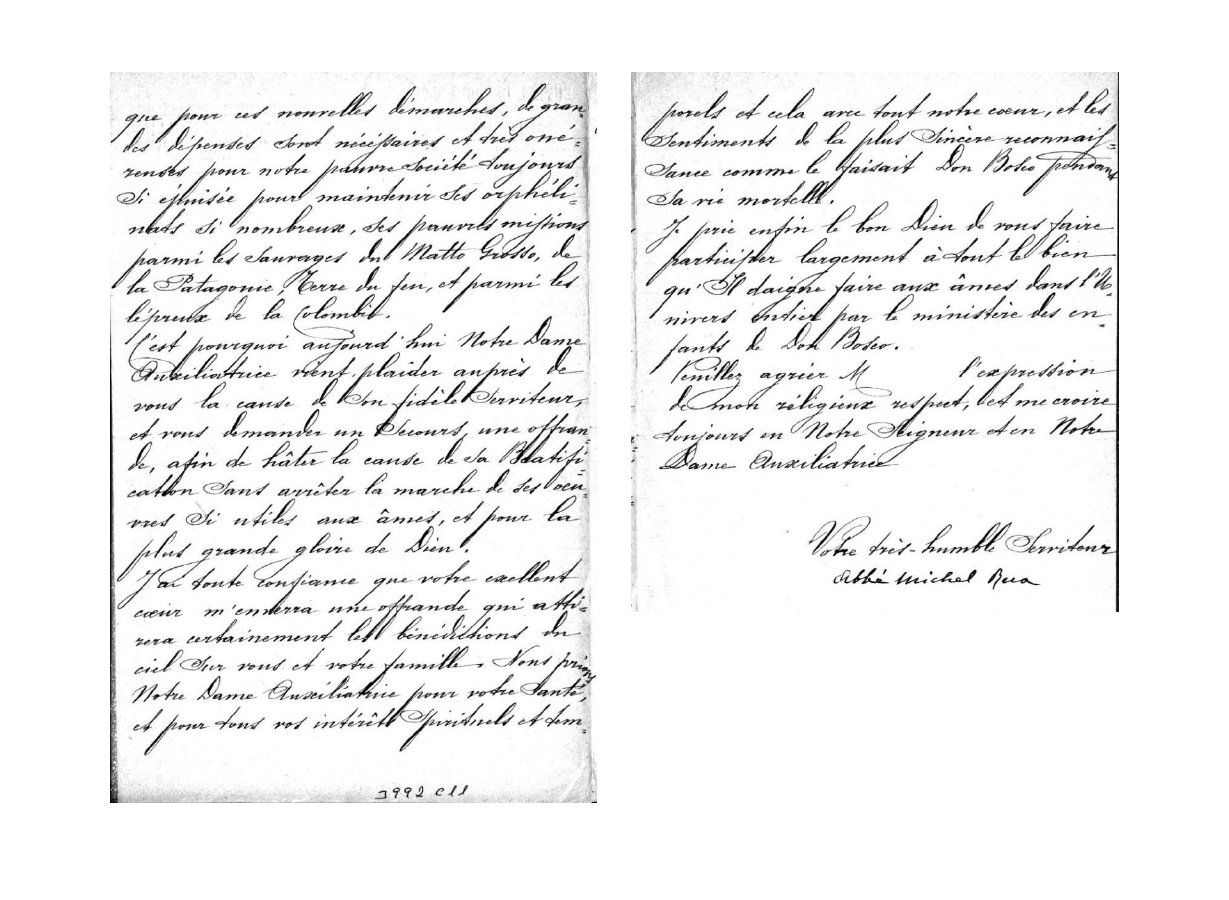 que pour ces nouvelles démarches, de gran-
des dépenses sont nécessaires et très oné-
reuses pour notre pauvre Société toujours
Si épuisée pour maintenir Ses orphéli-
nats Si nombreux, Ses pauvres missions
parmi les Sauvages du Matto Grosso, de
la Patagonie, Terre du feu, et parmi les
lépreux de la Colombie.
C'est pourquoi aujourd'hui Notre Dame
Auxiliatrice vient plaider auprès de
vous la cause de Son fidèle Serviteur,
et vous demander un Secours, une offran-
de, afin de hâter la cause de Sa Béatifi-
cation Sans arrêter la marche de Ses oeu-
vres Si utiles aux âmes, et pour la
plus grande gloire de Dieu.
J'ai toute confiance que votre excellent
cœur m'enverra une offrande qui atti-
rera certainement les bénédictions du
ciel Sur vous et votre famille. Nous prions
Notre Dame Auxiliatrice pour votre Santé,
et pour tous vos intérêts Spirituels et tem-
3992 C11
porels et cela avec tout notre cœur, et les
Sentiments de la plus Sincère reconnais-
Sance comme le faisait Don Bosco pendant
Sa vie mortelle.
Je prie enfin le bon Dieu de vous faire
participer largement à tout le bien
qu'Il daigne faire aux âmes dans l'U-
nivers entier par le ministère des en-
fants de Don Bosco.
Veuillez agréer M l'expression
de mon réligieux respect, et me croire
toujours en Notre Seigneur et en Notre
Dame Auxiliatrice
Votre très-humble Serviteur
Abbé Michel Rua